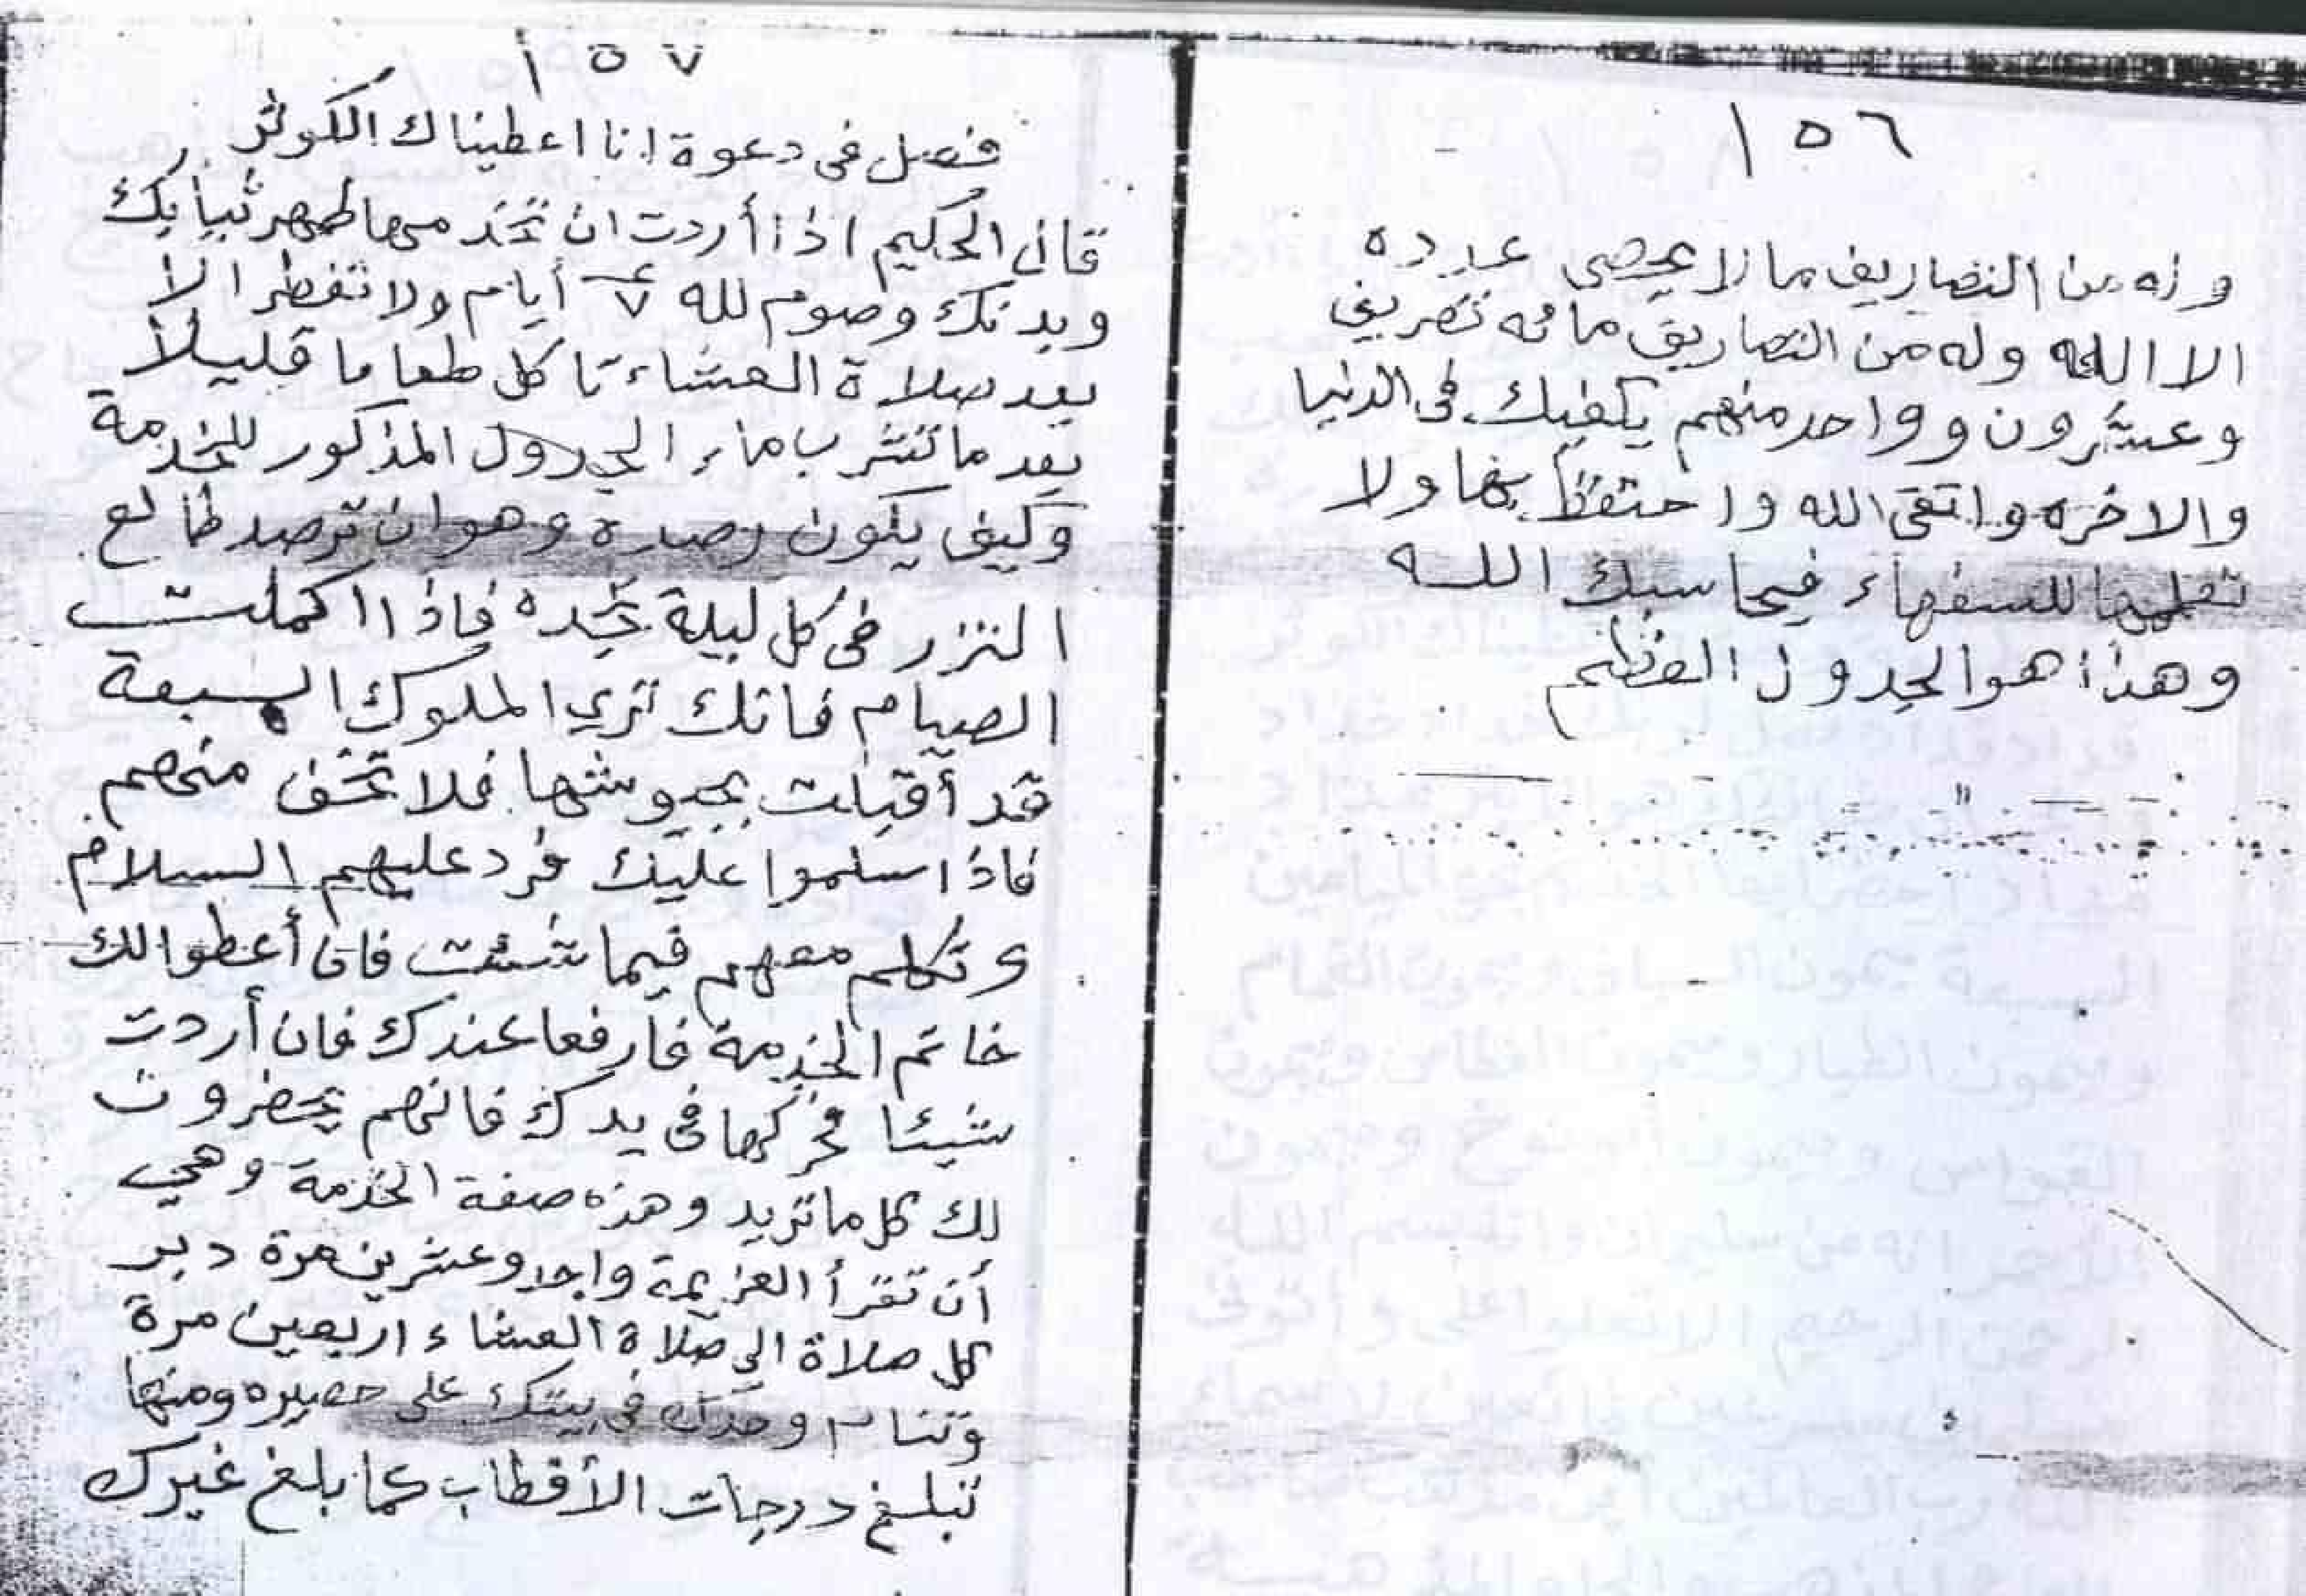 ١٥٦
وله من التصاريف ما لا يحصى عدده
الا الله وله من التصاريف مائه تصريف
وعشرون وواحد منهم يكفيك فى الدنيا
والاخره واتقى الله واحتفظ بها ولا
تعلمها للسفهاء فيحاسبك الله
وهذا هو الجدول العظيم
١٥٧
فصل فى دعوة انا اعطيناك الكوثر
قال الحكيم اذا أردت ان تخدمها طهر ثيابك
وبدنك وصوم لله ٧ أيام ولا تفطر الا
بعد صلاة العشاء تاكل طعاما قليلا
بعد ما تشرب ماء الجدول المذكور للخدمة
وكيف يكون رصده وهو ان ترصد طالع
فى كل ليلة تجده فاذا اكملت
الصيام فانك تري الملوك السبعة
قد أقبلت بجيوشها فلا تخف منهم
فاذا سلموا عليك فرد عليهم السلام
وتكلم معهم فيما شئت فان أعطوا لك
خاتم الخدمة فارفعا عندك فان أردت
شيئا فحركها فى يدك فانهم يحضرون
لك كل ما تريد وهذه صفة الخدمة وهي
أن تقرأ العزيمة واحد وعشرين مرة دبر
كل صلاة الي صلاة العشاء اربعين مرة
وتنام وحدك فى بيتك على حصيره ومنها
تبلغ درجات الأقطاب كما بلغ غيرك